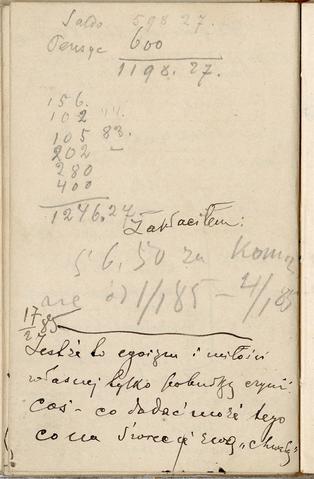 Saldo 598 27.
Pensya 600
1198. 27.
156.
102
105 83.
202 –
280
400
1246.27
Zapłaciłem:
56,50 za Komor
ne od 1/1 85 – 4/1 85
17/2 85
Jestże to egoizm i miłości
własnej tylko pobudką czynić
coś – co dodać może tego
co na świecie zwą „chwałą”